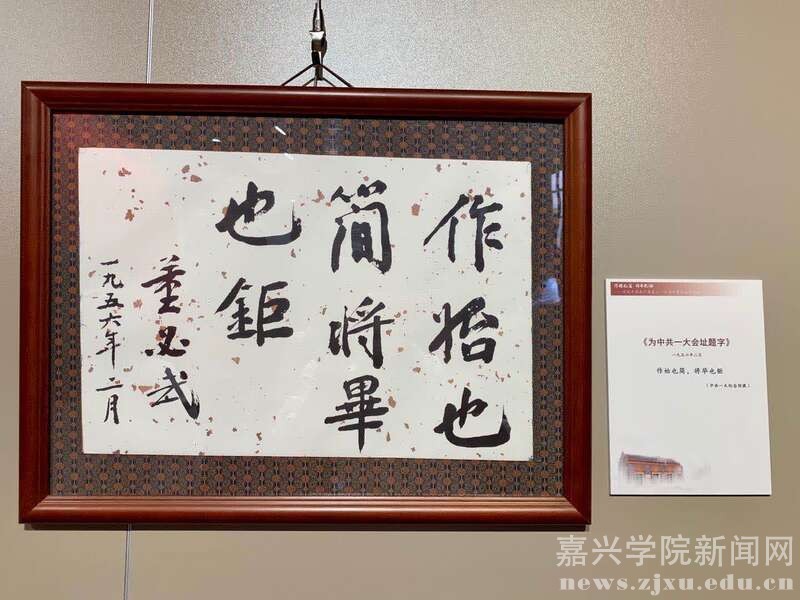 作始也
简将畢
也鉅
董必武
一九五六年二月
《为中共一大会址题字》
一九五六年二月
作始也简，将毕也钜
（中共一大纪念馆藏）
嘉兴学院新闻网
news.zjxu.edu.cn